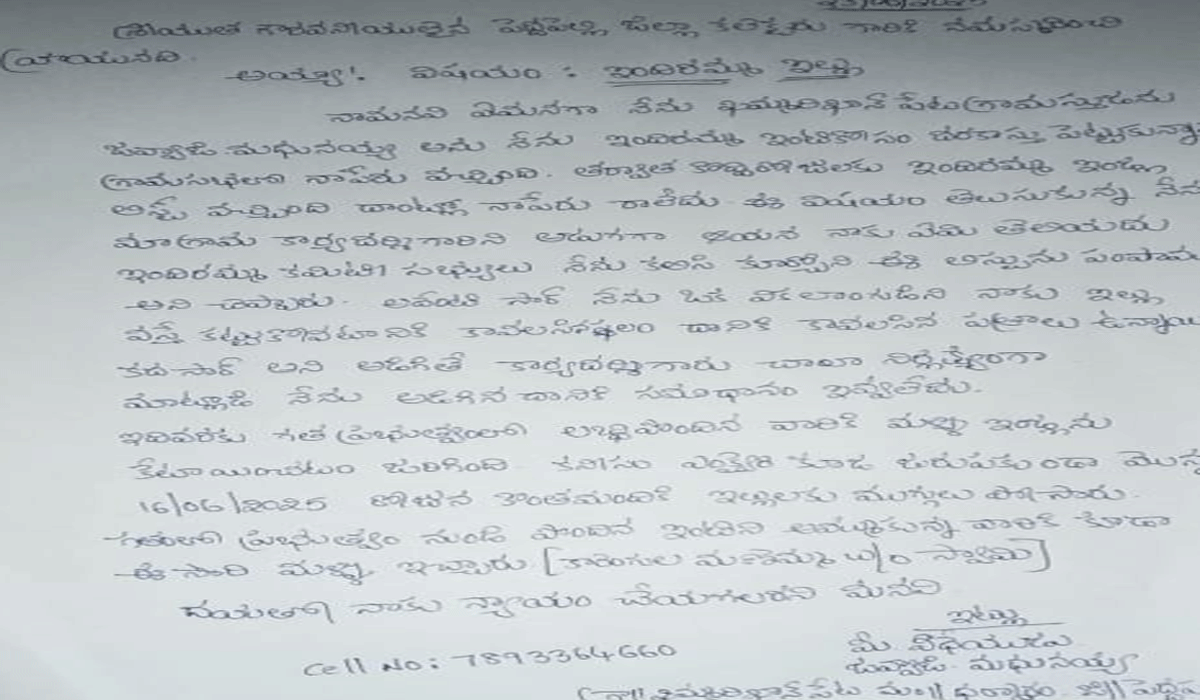 శ్రీయుత గౌరవనీయులైన పెద్దపల్లి జిల్లా కలెక్టరు గారికి నమస్కరించి
వ్రాయునది.
అయ్యా! విషయం : ఇందిరమ్మ ఇల్లు
నామనవి ఏమనగా నేను ఖమ్మంఖాన్ పేట గ్రామస్తుడను
జవ్వాజి మధునయ్య అను నేను ఇందిరమ్మ ఇంటికోసం దరకాస్తు పెట్టుకున్నా
గ్రామసభలో నాపేరు వచ్చింది. తర్వాత కొన్నిరోజులకు ఇందిరమ్మ ఇండ్ల
లిస్ట్ వచ్చింది దాంట్లో నాపేరు రాలేదు ఈ విషయం తెలుసుకున్న నేను
మాగ్రామ కార్యదర్శిగారిని అడుగగా ఆయన నాకు ఏమి తెలియదు
ఇందిరమ్మ కమిటీ సభ్యులు నేను కలిసి కూర్చొని ఈ లిస్టును పంపాము
అని చెప్పారు. అదేంటి సార్ నేను ఒక వికలాంగుడిని నాకు ఇల్లు
వస్తే కట్టుకోవటానికి కావలసిన స్థలం దానికి కావలసిన పత్రాలు ఉన్నాయి
కదసార్ అని అడిగితే కార్యదర్శిగారు చాలా నిర్లక్ష్యంగా
మాట్లాడి నేను అడిగిన దానికి సమాధానం ఇవ్వలేదు.
ఇదివరకు గత ప్రభుత్వంలో లబ్ధిపొందిన వారికి మళ్ళీ ఇండ్లను
కేటాయించటం జరిగింది. కనీసం ఎంక్వైరీ కూడ జరుపకుండా మొన్న
16/06/2025 రోజున కొంతమందికి ఇల్లులకు ముగ్గులు పోసారు.
గతంలో ప్రభుత్వం నుండి పొందిన ఇంటిని అమ్ముకున్న వారికి కూడా
ఈ సారి మళ్ళీ ఇచ్చారు [కారెంగుల మణెమ్మ w/o స్వామి]
దయతో నాకు న్యాయం చేయగలరని మనవి
ఇట్లు
మీ విధేయుడు
Cell No: 7893364660
జవ్వాజి మధునయ్య